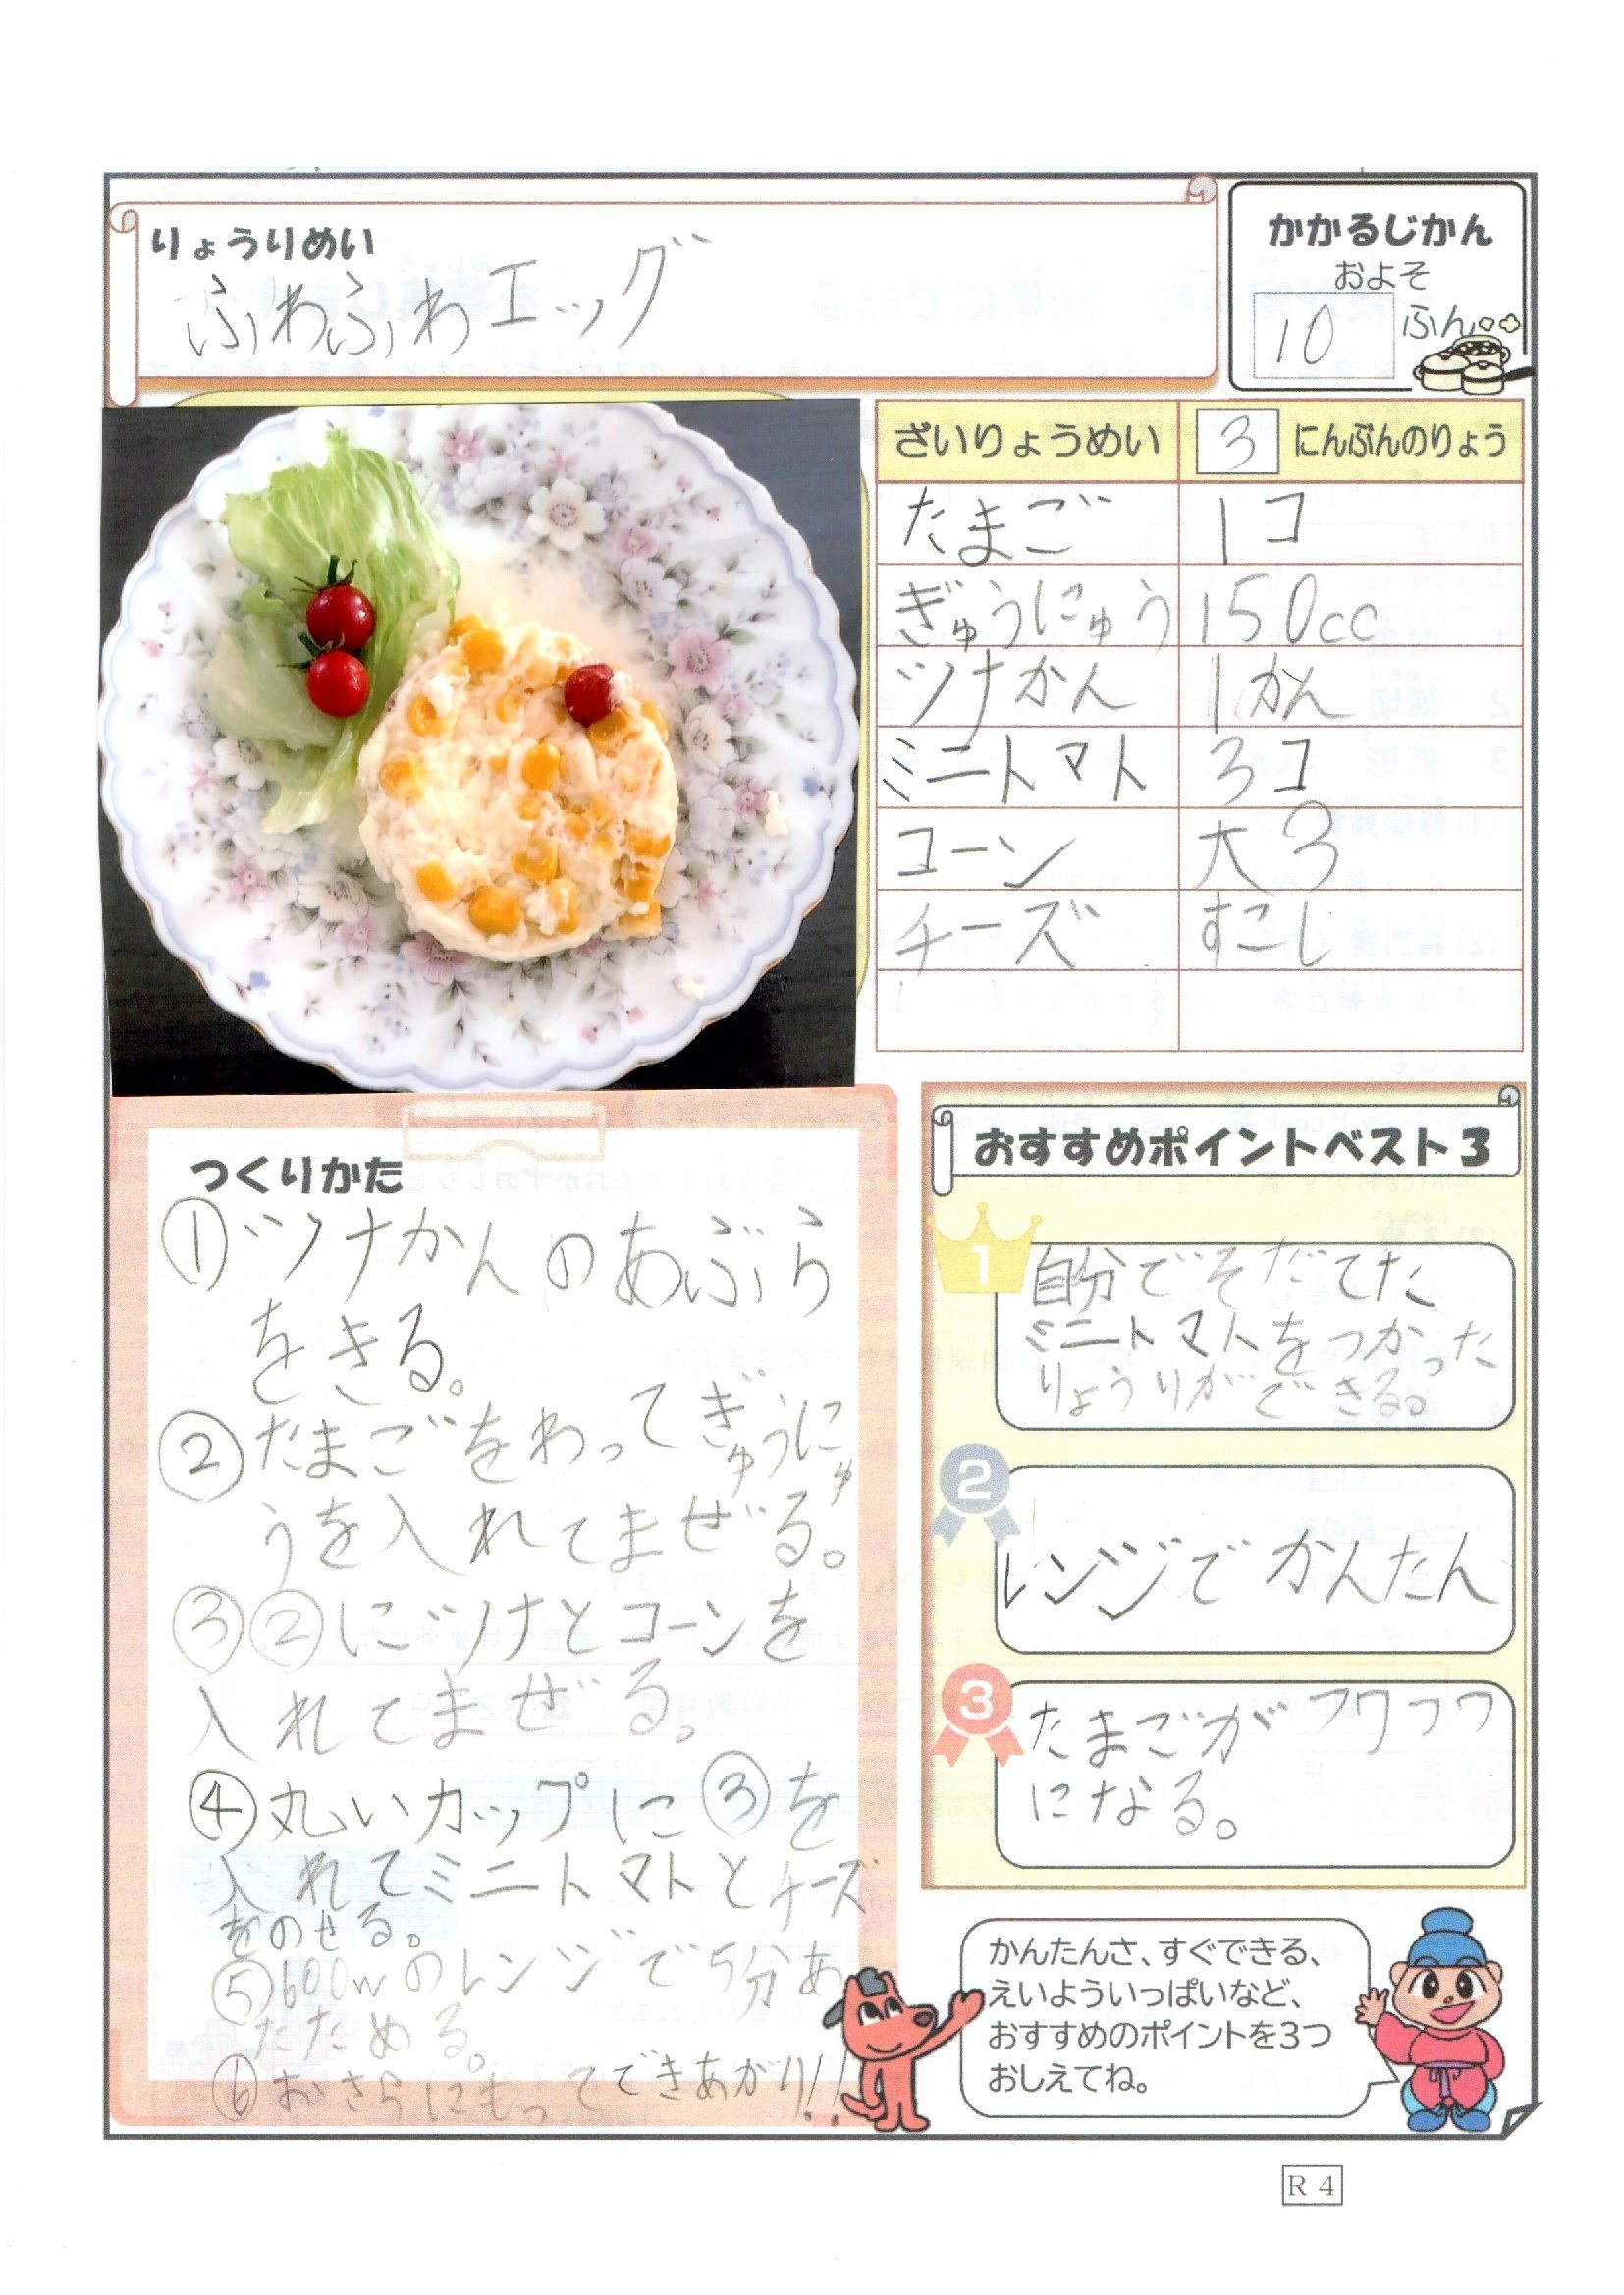 りょうりめい
ふわふわエッグ
かかるじかん
およそ
10 ふん
ざいりょうめい 3 にんぶんのりょう
たまご 1コ
ぎゅうにゅう 150cc
ツナかん 1かん
ミニトマト 3コ
コーン 大3
チーズ すこし
つくりかた
①ツナかんのあぶら
をきる。
②たまごをわってぎゅうにゅ
うを入れてまぜる。
③②にツナとコーンを
入れてまぜる。
④丸いカップに③を
入れてミニトマトとチーズ
をのせる。
⑤600wのレンジで5分あ
たためる。
⑥おさらにもってできあがり!!
おすすめポイントベスト3
1
自分でそだてた
ミニトマトをつかった
りょうりができる。
2
レンジでかんたん
3
たまごがフワフワ
になる。
かんたんさ、すぐできる、
えいよういっぱいなど、
おすすめのポイントを3つ
おしえてね。
R 4